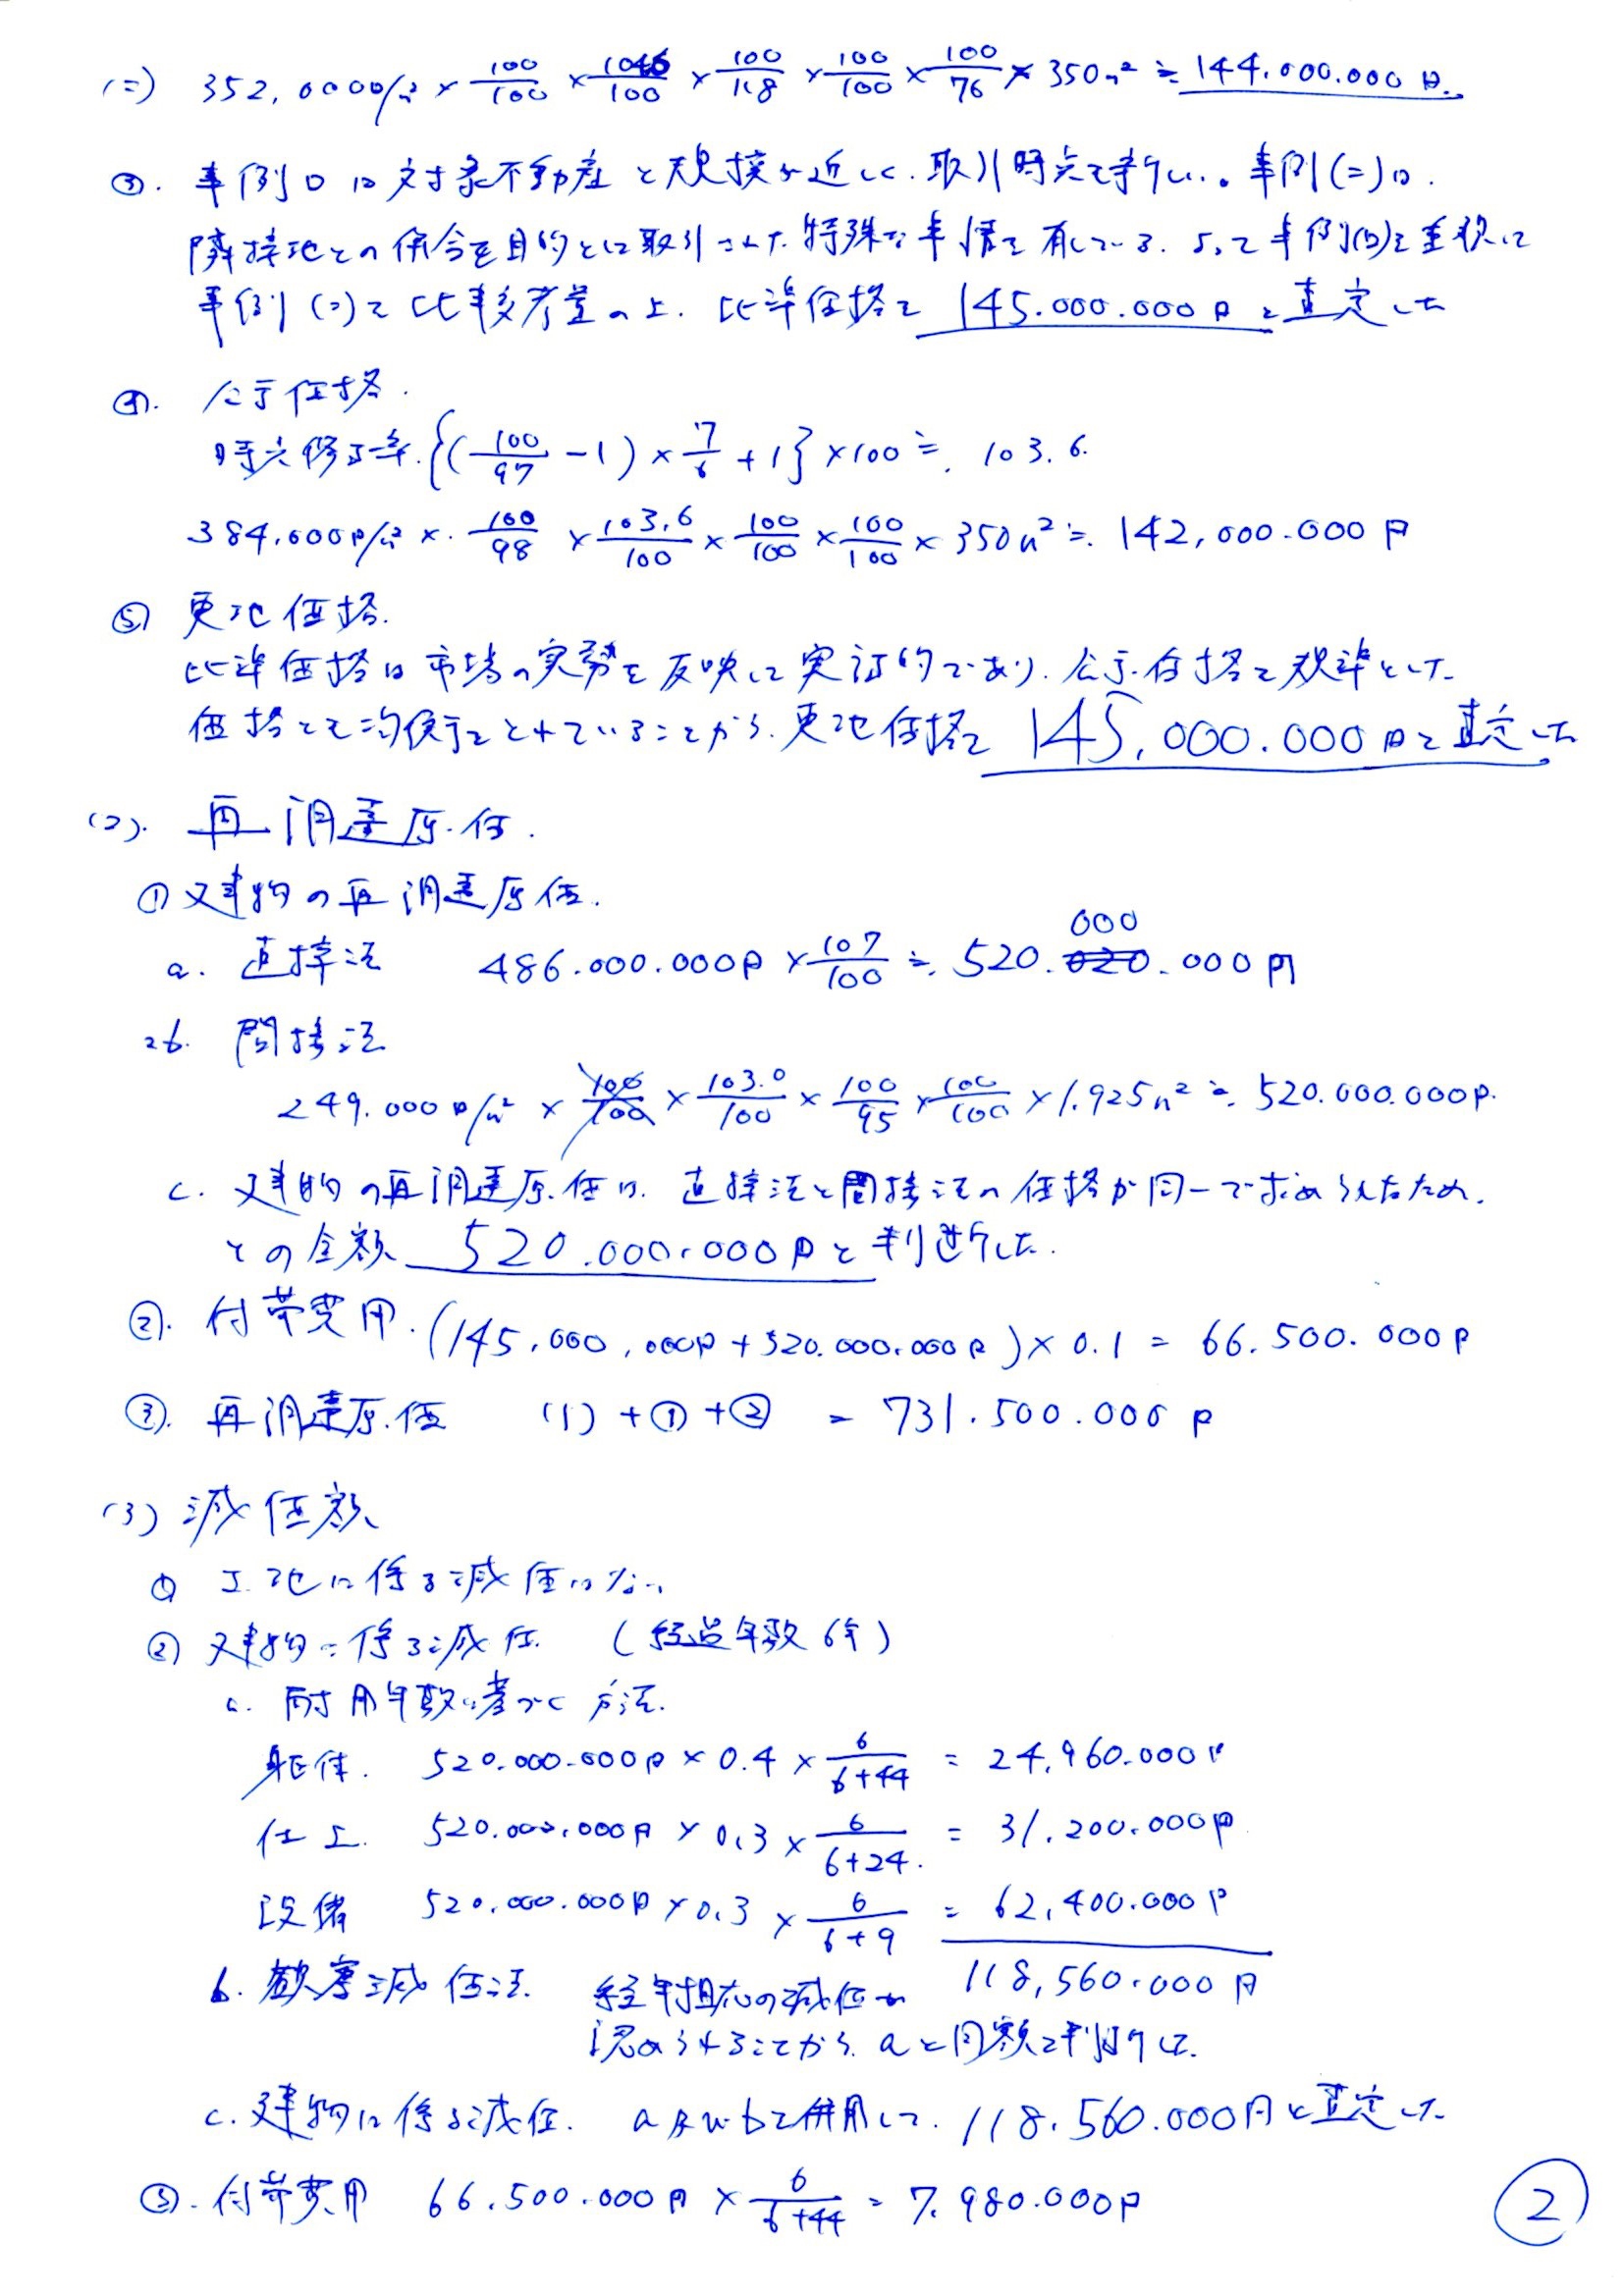 (ニ) 352,000円/㎡ × 100/100 × 104.6/100 × 100/118 × 100/100 × 100/76 × 350㎡ ≒ 144.000.000円.
③. 事例ロは対象不動産と規模が近しく.取引時点も新しい。事例(ニ)は.
隣接地との併合を目的として取引された特殊な事情を有している.よって事例(ロ)を重視して
事例(ニ)を比較考量の上.比準価格を145.000.000円と査定した
④. 公示価格.
時点修正率.{(100/97 - 1) × 7/6 + 1} × 100 ≒. 103.6.
384,000円/㎡ ×. 100/98 × 103.6/100 × 100/100 × 100/100 × 350㎡ ≒. 142,000.000円
⑤ 更地価格.
比準価格は市場の実勢を反映して実証的であり.公示価格を規準とした
価格とも均衡をとれていることから.更地価格を145,000.000円と査定した
(2). 再調達原価.
① 建物の再調達原価.
a. 直接法 486.000.000円 × 107/100 ≒. 520.000.000円
b. 間接法
249.000円/㎡ × 100/100 × 103.0/100 × 100/95 × 100/100 × 1.925㎡ ≒. 520.000.000円.
c. 建物の再調達原価は.直接法と間接法の価格が同一で求められたため.
その金額 520.000.000円と判断した.
②. 付帯費用.(145.000,000円 + 520.000.000円) × 0.1 = 66.500.000円
③. 再調達原価 (1) + ① + ② = 731.500.000円
(3) 減価額
① 土地に係る減価はない
② 建物に係る減価. (経過年数6年)
a. 耐用年数に基づく方法.
躯体. 520.000.000円 × 0.4 × 6/6+44 = 24,960.000円
仕上. 520.000.000円 × 0.3 × 6/6+24. = 31.200.000円
設備 520.000.000円 × 0.3 × 6/6+9 = 62,400.000円
118,560.000円
b. 観察減価法. 経年相応の減価が
認められることから.aと同額と判断した.
c. 建物に係る減価. a及びbを併用して.118.560.000円と査定した
③. 付帯費用 66.500.000円 × 6/6+44 = 7.980.000円
②